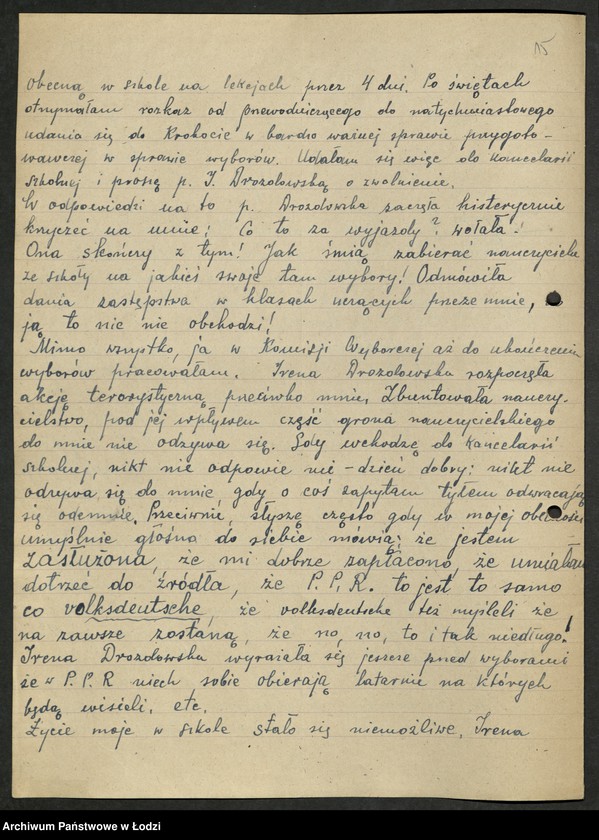 15
obecną w szkole na lekcjach przez 4 dni. Po świętach
otrzymałam rozkaz od przewodniczącego do natychmiastowego
udania się do Krokocie w bardzo ważnej sprawie przygoto-
wawczej w sprawie wyborów. Udałam się więc do kancelarii
szkolnej i proszę p. I. Drozdowską o zwolnienie.
W odpowiedzi na to p. Drozdowska zaczęła histerycznie
krzyczeć na mnie; Co to za wyjazdy? wołała!
Ona skończy z tym! Jak śmią zabierać nauczyciela
ze szkoły na jakieś swoje tam wybory! Odmówiła
dania zastępstwa w klasach uczących przeze mnie,
ją to nic nie obchodzi!
Mimo wszystko, ja w Komisji Wyborczej aż do ukończenia
wyborów pracowałam. Irena Drozdowska rozpoczęła
akcję terorystyczną przeciwko mnie. Zbuntowała nauczy-
cielstwo, pod jej wpływem część grona nauczycielskiego
do mnie nie odzywa się. Gdy wchodzę do kancelarii
szkolnej, nikt nie odpowie mi - dzień dobry; nikt nie
odzywa się do mnie, gdy o coś zapytam tyłem odwracają
się odemnie. Przeciwnie, słyszę często gdy w mojej obecności
umyślnie głośno do siebie mówią; że jestem
zasłużona, że mi dobrze zapłacono, że umiałam
dotrzeć do źródła, że P.P.R. to jest to samo
co volksdeutsche, że volksdeutsche też myśleli że
na zawsze zostaną, że no, no, to i tak niedługo!
Irena Drozdowska wyrażała się jeszcze przed wyborami
że w P.P.R niech sobie obierają latarnie na których
będą wisieli. etc.
Życie moje w szkole stało się niemożliwe. Irena
Archiwum Państwowe w Łodzi